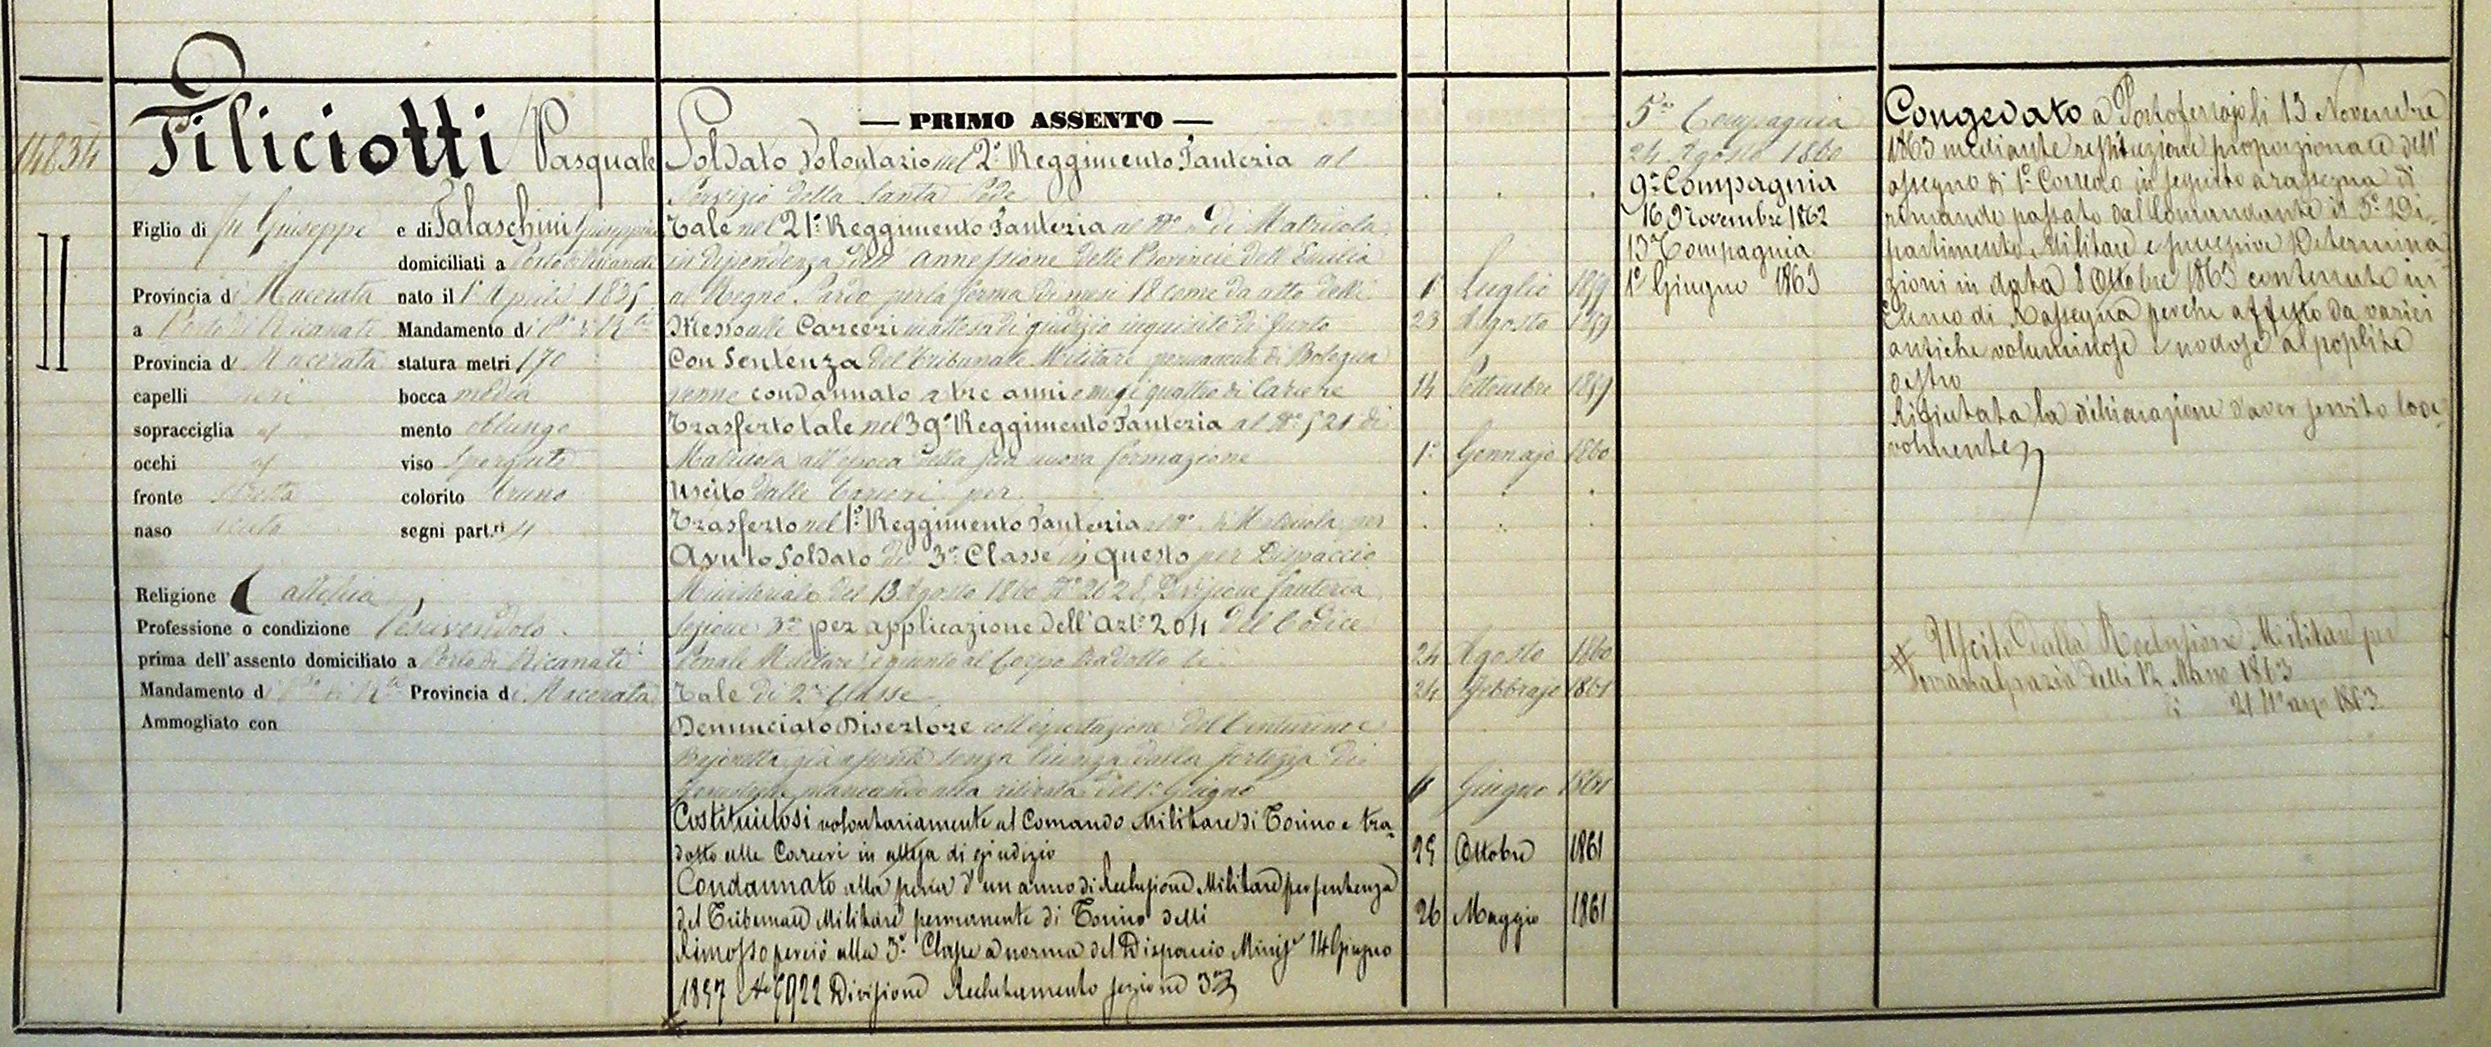 14834
Filiciotti Pasquale
Figlio di fu Giuseppe e di Falaschini Giuseppina
domiciliati a Porto di Ricanati
Provincia di Macerata nato il 1° Aprile 1835
a Porto di Ricanati Mandamento di Pto di Rti
Provincia di Macerata statura metri 1,70
capelli neri bocca media
sopracciglia id mento oblungo
occhi id viso
fronte stretta colorito bruno
naso segni part.ri 4
Religione Cattolica
Professione o condizione Pescivendolo
prima dell'assento domiciliato a Porto di Ricanati
Mandamento di Pto di Rti Provincia di Macerata
Ammogliato con
— PRIMO ASSENTO —
Soldato Volontario nel 2° Reggimento Fanteria al
Servizio della Santa Sede
Tale nel 21° Reggimento Fanteria al N° " di Matricola
in dipendenza dell'annessione delle Provincie dell'Emilia
al Regno Sardo per la ferma di mesi 18 come da atto delli 1° Luglio 1859
Messo nelle Carceri in attesa di giudizio inquisito di furto 23 Agosto 1859
Con Sentenza del Tribunale Militare permanente di Bologna
venne condannato a tre anni e mesi quattro di Carcere 14 Settembre 1859
Trasferto tale nel 39° Reggimento Fanteria al N° 521 di
Matricola all'epoca della sua nuova formazione 1° Gennajo 1860
Uscito dalle Carceri per
Trasferto nel 1° Reggimento Fanteria al N° di Matricola per
Avuto Soldato di 3a Classe in questo per Dispaccio
Ministeriale del 13 Agosto 1860 N° 2628, Divisione Fanteria
Sezione 3a per applicazione dell'Art° 204 del Codice
Penale Militare e giunto al Corpo tradotto li 24 Agosto 1860
Tale di 2a Classe 24 Febbrajo 1861
Denunciato Disertore coll'esportazione del Centurino e
Bajonetta già assente senza licenza dalla fortezza di
mancando alla ritirata del 1° Giugno 4 Giugno 1861
Costituitosi volontariamente al Comando Militare di Torino e tra-
dotto alle Carceri in attesa di giudizio 25 Ottobre 1861
Condannato alla pena d'un anno di Reclusione Militare per sentenza
del Tribunale Militare permanente di Torino delli 26 Maggio 1861
Rimosso perciò alla 3a Classe a norma del Dispaccio Minisle 14 Giugno
1857 N° 5922 Divisione Reclutamento sezione 3a
5a Compagnia
24 Agosto 1860
9a Compagnia
16 9novembre 1862
13 Compagnia
1° Giugno 1863
Congedato a Portoferrajo li 13 Novembre
1863 mediante restituzione proporzionale dell'
assegno di 1° Corredo in seguito a rassegna di
rimando passato dal Comandante il 5° Di-
partimento Militare e successive Determina-
zioni in data 8 Ottobre 1863 contenute in
Elenco di Rassegna perché affetto da varici
antiche voluminose e nodose al poplite
destro
Rifiutata la dichiarazione d'aver servito loде-
volmente
# Uscito dalla Reclusione Militare per
Sovrana Grazia delli 12 Marzo 1863
li 21 Marzo 1863